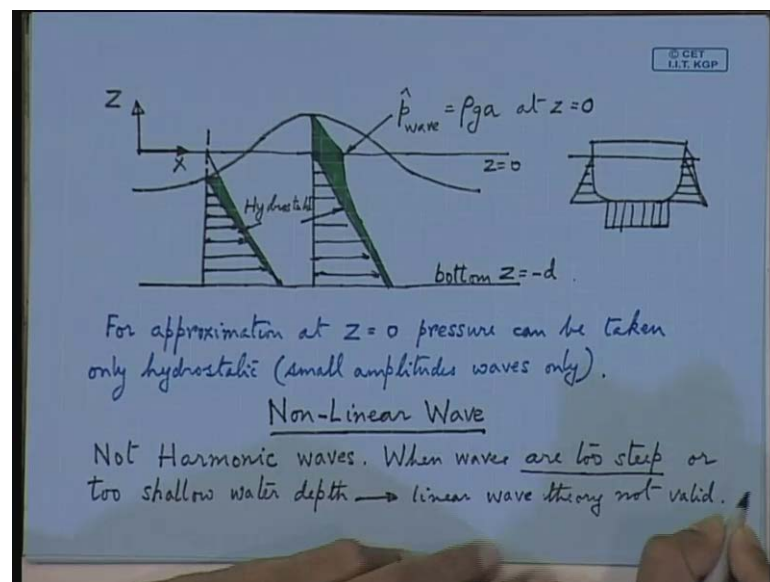 © CET
I.I.T. KGP
Z
X
p̂wave = ρga at z=0
z=0
Hydrostatic
bottom z=-d
For approximation at z=0 pressure can be taken
only hydrostatic (small amplitudes waves only).
Non-Linear Wave
Not Harmonic waves. When waves are too steep or
too shallow water depth → linear wave theory not valid.